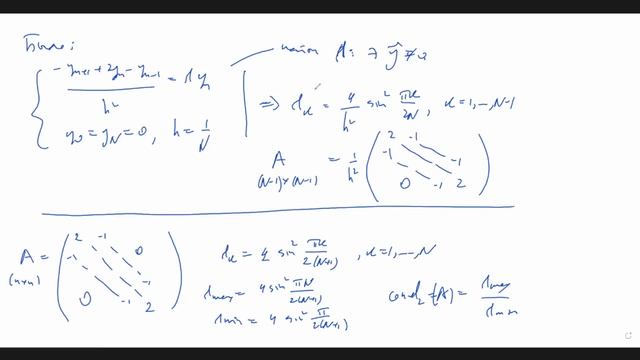 Было:
найти λ: ∃ ŷ ≠ 0
{ (-y_{n+1} + 2y_n - y_{n-1}) / h² = λ y_n
y_0 = y_N = 0, h = 1/N
⇒ λ_k = 4/h² sin² πk/2N, k = 1,…,N-1
A (N-1)×(N-1) = 1/h² ( 2 -1 -1 -1 0 -1 2 )
A (n×n) = ( 2 -1 -1 0 -1 0 -1 2 )
λ_k = 4 sin² πk/2(N+1), k = 1,…,N
λ_max = 4 sin² πN/2(N+1)
λ_min = 4 sin² π/2(N+1)
cond_2(A) = λ_max/λ_min